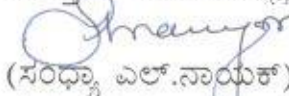 (ಸಂಧ್ಯಾ ಎಲ್.ನಾಯಕ್)